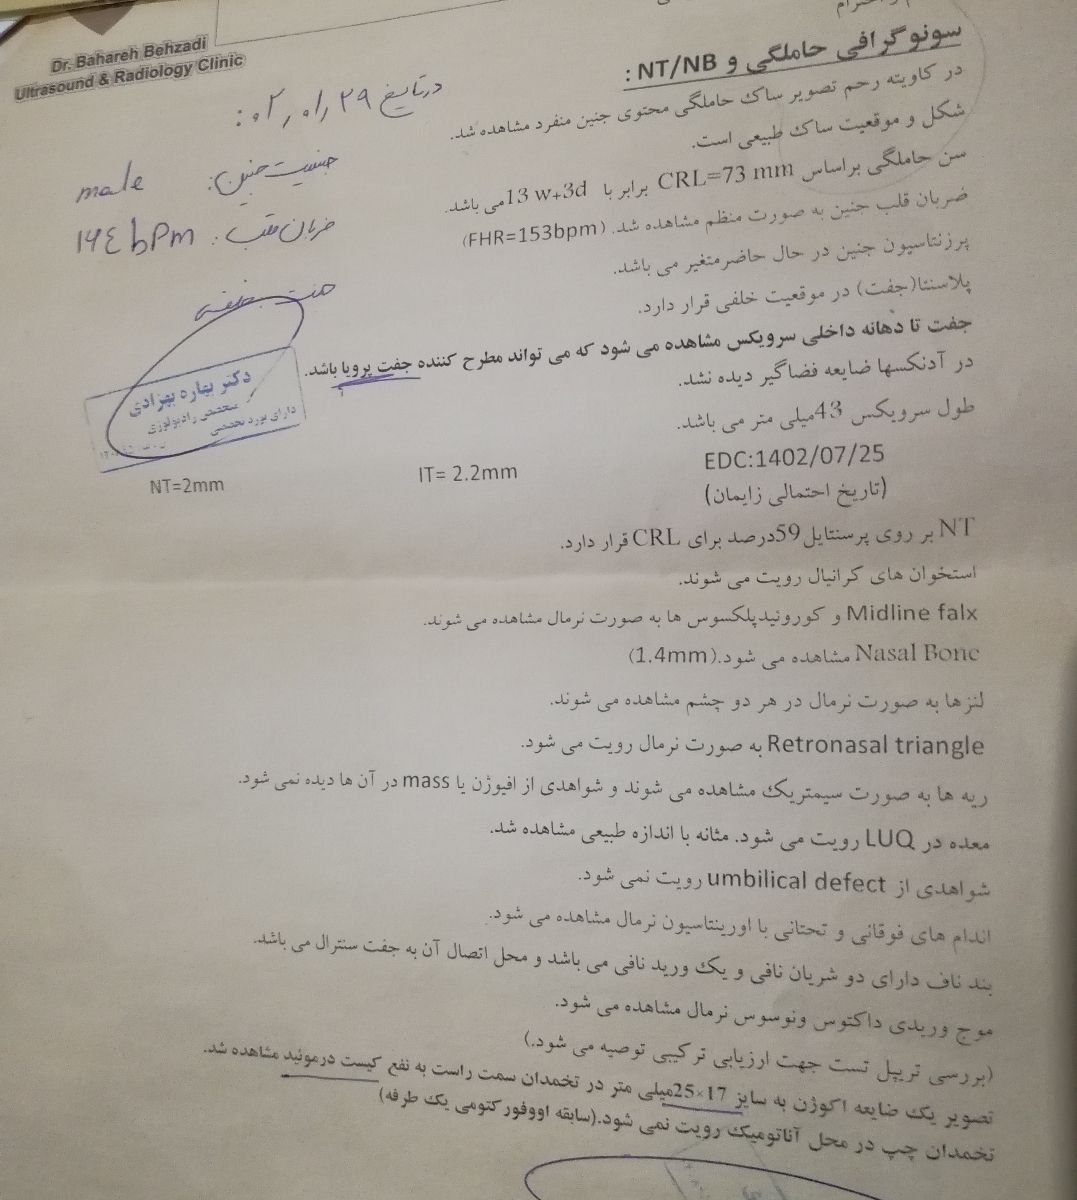 Dr. Bahareh Behzadi
Ultrasound & Radiology Clinic
سونوگرافی حاملگی و NT/NB :
در کاویته رحم تصویر ساک حاملگی محتوی جنین منفرد مشاهده شد.
شکل و موقعیت ساک طبیعی است.
سن حاملگی براساس CRL=73 mm برابر با 13 w+3d می باشد.
ضربان قلب جنین به صورت منظم مشاهده شد. (FHR=153bpm)
پرزنتاسیون جنین در حال حاضرمتغیر می باشد.
پلاسنتا(جفت) در موقعیت خلفی قرار دارد.
جفت تا دهانه داخلی سرویکس مشاهده می شود که می تواند مطرح کننده جفت پرویا باشد.
در آدنکسها ضایعه فضاگیر دیده نشد.
طول سرویکس 43میلی متر می باشد.
در تاریخ ۰۲,۰۱,۲۹ :
جنسیت جنین: male
ضربان قلب: ۱۶٤ bpm
دکتر بهاره بهزادی
متخصص رادیولوژی
دارای بورد تخصصی
EDC:1402/07/25
(تاریخ احتمالی زایمان)
IT= 2.2mm
NT=2mm
NT بر روی پرسنتایل 59درصد برای CRL قرار دارد.
استخوان های کرانیال رویت می شوند.
Midline falx و کوروئیدپلکسوس ها به صورت نرمال مشاهده می شوند.
Nasal Bone مشاهده می شود.(1.4mm)
لنزها به صورت نرمال در هر دو چشم مشاهده می شوند.
Retronasal triangle به صورت نرمال رویت می شود.
ریه ها به صورت سیمتریک مشاهده می شوند و شواهدی از افیوژن یا mass در آن ها دیده نمی شود.
معده در LUQ رویت می شود. مثانه با اندازه طبیعی مشاهده شد.
شواهدی از umbilical defect رویت نمی شود.
اندام های فوقانی و تحتانی با اورینتاسیون نرمال مشاهده می شود.
بند ناف دارای دو شریان نافی و یک ورید نافی می باشد و محل اتصال آن به جفت سنترال می باشد.
موج وریدی داکتوس ونوسوس نرمال مشاهده می شود.
(بررسی تریپل تست جهت ارزیابی ترکیبی توصیه می شود.)
تصویر یک ضایعه اکوژن به سایز 17×25میلی متر در تخمدان سمت راست به نفع کیست درموئید مشاهده شد.
تخمدان چپ در محل آناتومیک رویت نمی شود.(سابقه اووفورکتومی یک طرفه)